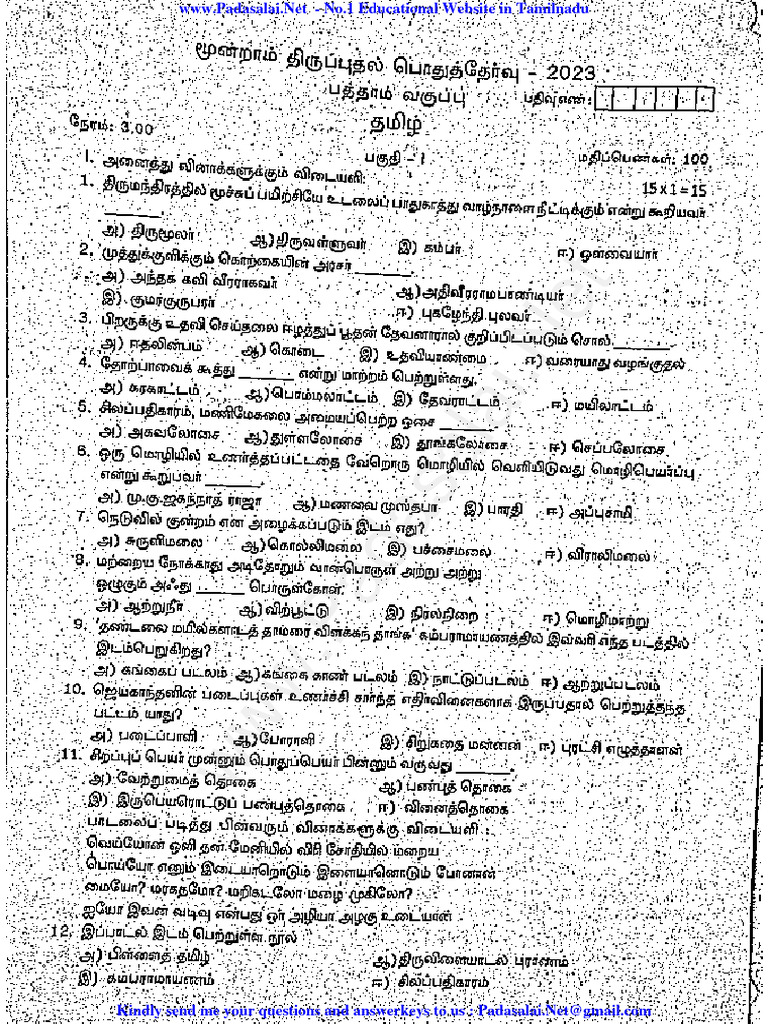 www.Padasalai.Net - No.1 Educational Website in Tamilnadu
மூன்றாம் திருப்புதல் பொதுத்தேர்வு - 2023
பத்தாம் வகுப்பு
பதிவுஎண்:
நேரம்: 3.00
தமிழ்
பகுதி - I
மதிப்பெண்கள்: 100
I. அனைத்து வினாக்களுக்கும் விடையளி:
15 x 1 = 15
1. திருமந்திரத்தில் மூச்சுப் பயிற்சியே உடலைப் பாதுகாத்து வாழ்நாளை நீட்டிக்கும் என்று கூறியவர்
அ) திருமூலர் ஆ) திருவள்ளுவர் இ) கம்பர் ஈ) ஔவையார்
2. 'முத்துக்குளிக்கும் கொற்கையின் அரசர் ______.
அ) அந்தக கவி வீரராகவர் ஆ) அதிவீரராமபாண்டியர்
இ) குமரகுருபரர் ஈ) புகழேந்தி புலவர்
3. பிறருக்கு உதவி செய்தலை ஈழத்துப் பூதன் தேவனாரால் குறிப்பிடப்படும் சொல் ______.
அ) ஈதலின்பம் ஆ) கொடை இ) உதவியாண்மை ஈ) வரையாது வழங்குதல்
4. தோற்பாவைக் கூத்து ______ என்று மாற்றம் பெற்றுள்ளது.
அ) கரகாட்டம் ஆ) பொம்மலாட்டம் இ) தேவராட்டம் ஈ) மயிலாட்டம்
5. சிலப்பதிகாரம், மணிமேகலை அமையப்பெற்ற ஓசை ______.
அ) அகவலோசை ஆ) துள்ளலோசை இ) தூங்கலோசை ஈ) செப்பலோசை
6. ஒரு மொழியில் உணர்த்தப்பட்டதை வேறொரு மொழியில் வெளியிடுவது மொழிபெயர்ப்பு
என்று கூறுபவர் ______.
அ) மு.கு.ஜகந்நாத ராஜா ஆ) மணவை முஸ்தபா இ) பாரதி ஈ) அப்புசாமி
7. நெடுவில் குன்றம் என அழைக்கப்படும் இடம் எது?
அ) சுருளிமலை ஆ) கொல்லிமலை இ) பச்சைமலை ஈ) வீராலிமலை
8. மற்றைய நோக்காது அடிதோறும் வான்பொருள் அற்று அற்று
ஒழுகும் அஃது ______ பொருள்கோள்.
அ) ஆற்றுநீர் ஆ) விற்பூட்டு இ) நிரல்நிறை ஈ) மொழிமாற்று
9. 'தண்டலை மயில்களாடத் தாமரை விளக்கந் தாங்க' கம்பராமாயணத்தில் இவ்வரி எந்த படத்தில்
இடம்பெறுகிறது?
அ) கங்கைப் படலம் ஆ) கங்கை காண் படலம் இ) நாட்டுப்படலம் ஈ) ஆற்றுப்படலம்
10. ஜெயகாந்தனின் படைப்புகள் உணர்ச்சி சார்ந்த எதிர்வினைகளாக இருப்பதால் பெற்றுத்தந்த
பட்டம் யாது?
அ) படைப்பாளி ஆ) போராளி இ) சிறுகதை மன்னன் ஈ) புரட்சி எழுத்தாளன்
11. சிறப்புப் பெயர் முன்னும் பொதுப்பெயர் பின்னும் வருவது ______.
அ) வேற்றுமைத் தொகை ஆ) பண்புத் தொகை
இ) இருபெயரொட்டுப் பண்புத்தொகை ஈ) வினைத்தொகை
பாடலைப் படித்து பின்வரும் வினாக்களுக்கு விடையளி :
வெய்யோன் ஒளி தன் மேனியில் விரி சோதியில் மறைய
பொய்யோ எனும் இடையாறொடும் இளையானொடும் போனான்
மையோ? மரகதமோ? மறிகடலோ மழை முகிலோ?
ஐயோ இவன் வடிவு என்பது ஓர் அழியா அழகு உடையான்
12. இப்பாடல் இடம் பெற்றுள்ள நூல்
அ) பிள்ளைத் தமிழ் ஆ) திருவிளையாடல் புராணம்
இ) கம்பராமாயணம் ஈ) சிலப்பதிகாரம்
Kindly send me your questions and answerkeys to us : Padasalai.Net@gmail.com